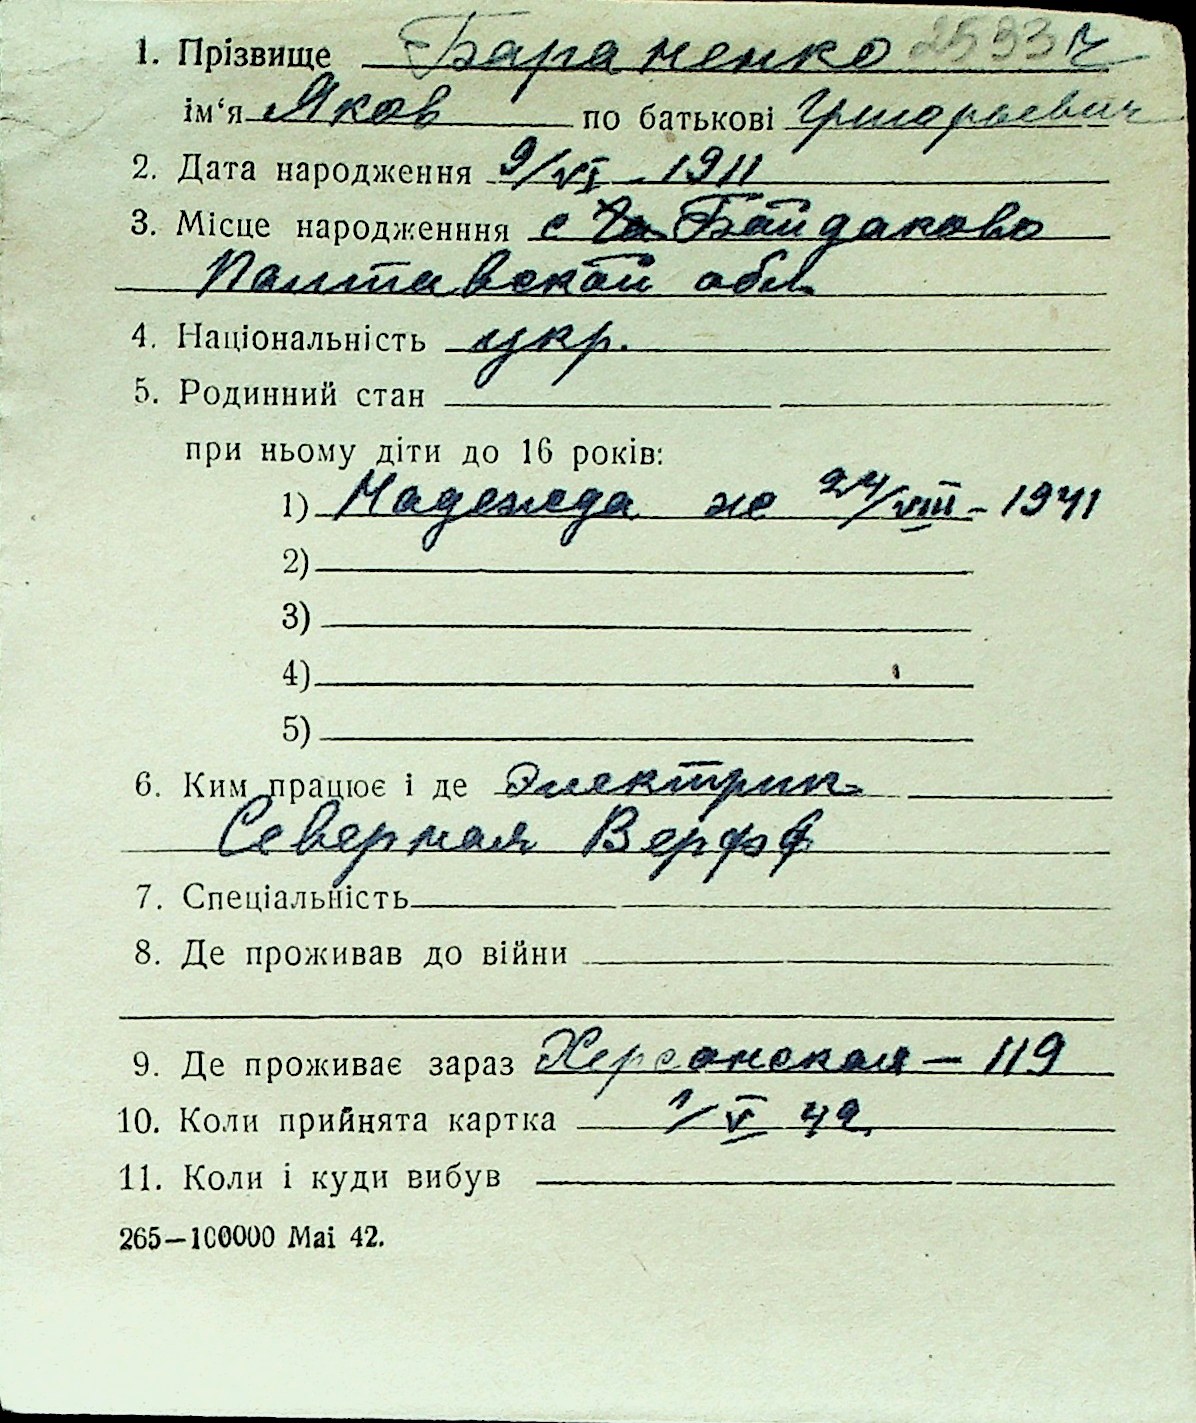 1. Прізвище Бараненко 25933
ім'я Яков по батькові Григорьевич
2. Дата народження 9/VI - 1911
3. Місце народженння с Байдаково
Полтавской обл
4. Національність укр.
5. Родинний стан
при ньому діти до 16 років:
1) Надежда 24/VIII - 1941
2)
3)
4)
5)
6. Ким працює і де Электрик
Северная Верфь
7. Спеціальність
8. Де проживав до війни
9. Де проживає зараз Херсонская - 119
10. Коли прийнята картка 1/V 42.
11. Коли і куди вибув
265—100000 Mai 42.